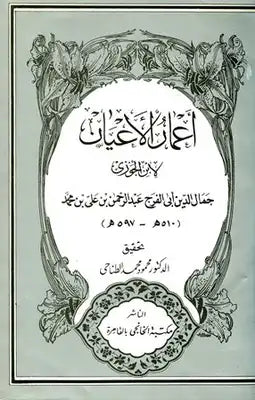 أعمار الأعيان
لابن الجوزي
جمال الدين أبي الفرج عبد الرحمن بن علي بن محمد
(٥١٠ هـ - ٥٩٧ هـ)
تحقيق
الدكتور محمود محمد الطناحي
الناشر
مكتبة الخانجي بالقاهرة